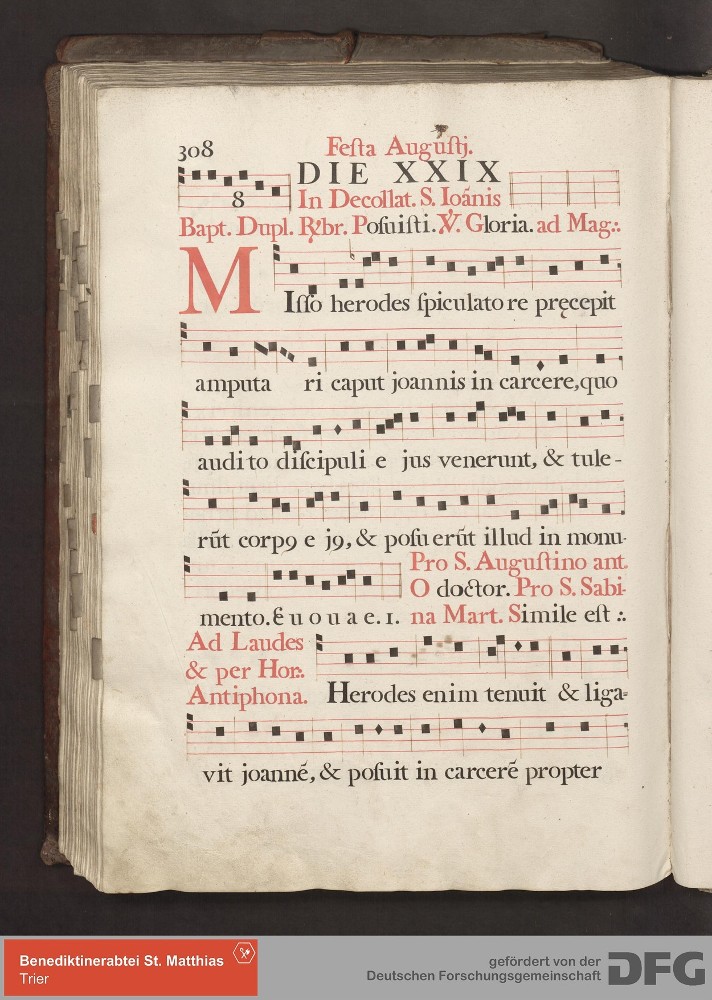 308
Feſta Auguſtj.
DIE XXIX
8
In Decollat. S. Ioānis
Bapt. Dupl. ℟br. Poſuiſti. ℣. Gloria. ad Mag:.
MIſſo herodes ſpiculatore pręcepit
amputa ri caput joannis in carcere, quo
audito diſcipuli e jus venerunt, & tule-
rūt corp9 e j9, & poſuerūt illud in monu-
mento. E u o u a e. 1.
Pro S. Auguſtino ant.
O doctor. Pro S. Sabi-
na Mart. Simile eſt :.
Ad Laudes
& per Hor:.
Antiphona.
Herodes enim tenuit & liga-
vit joannē, & poſuit in carcerē propter
Benediktinerabtei St. Matthias
Trier
gefördert von der
Deutschen Forschungsgemeinschaft
DFG